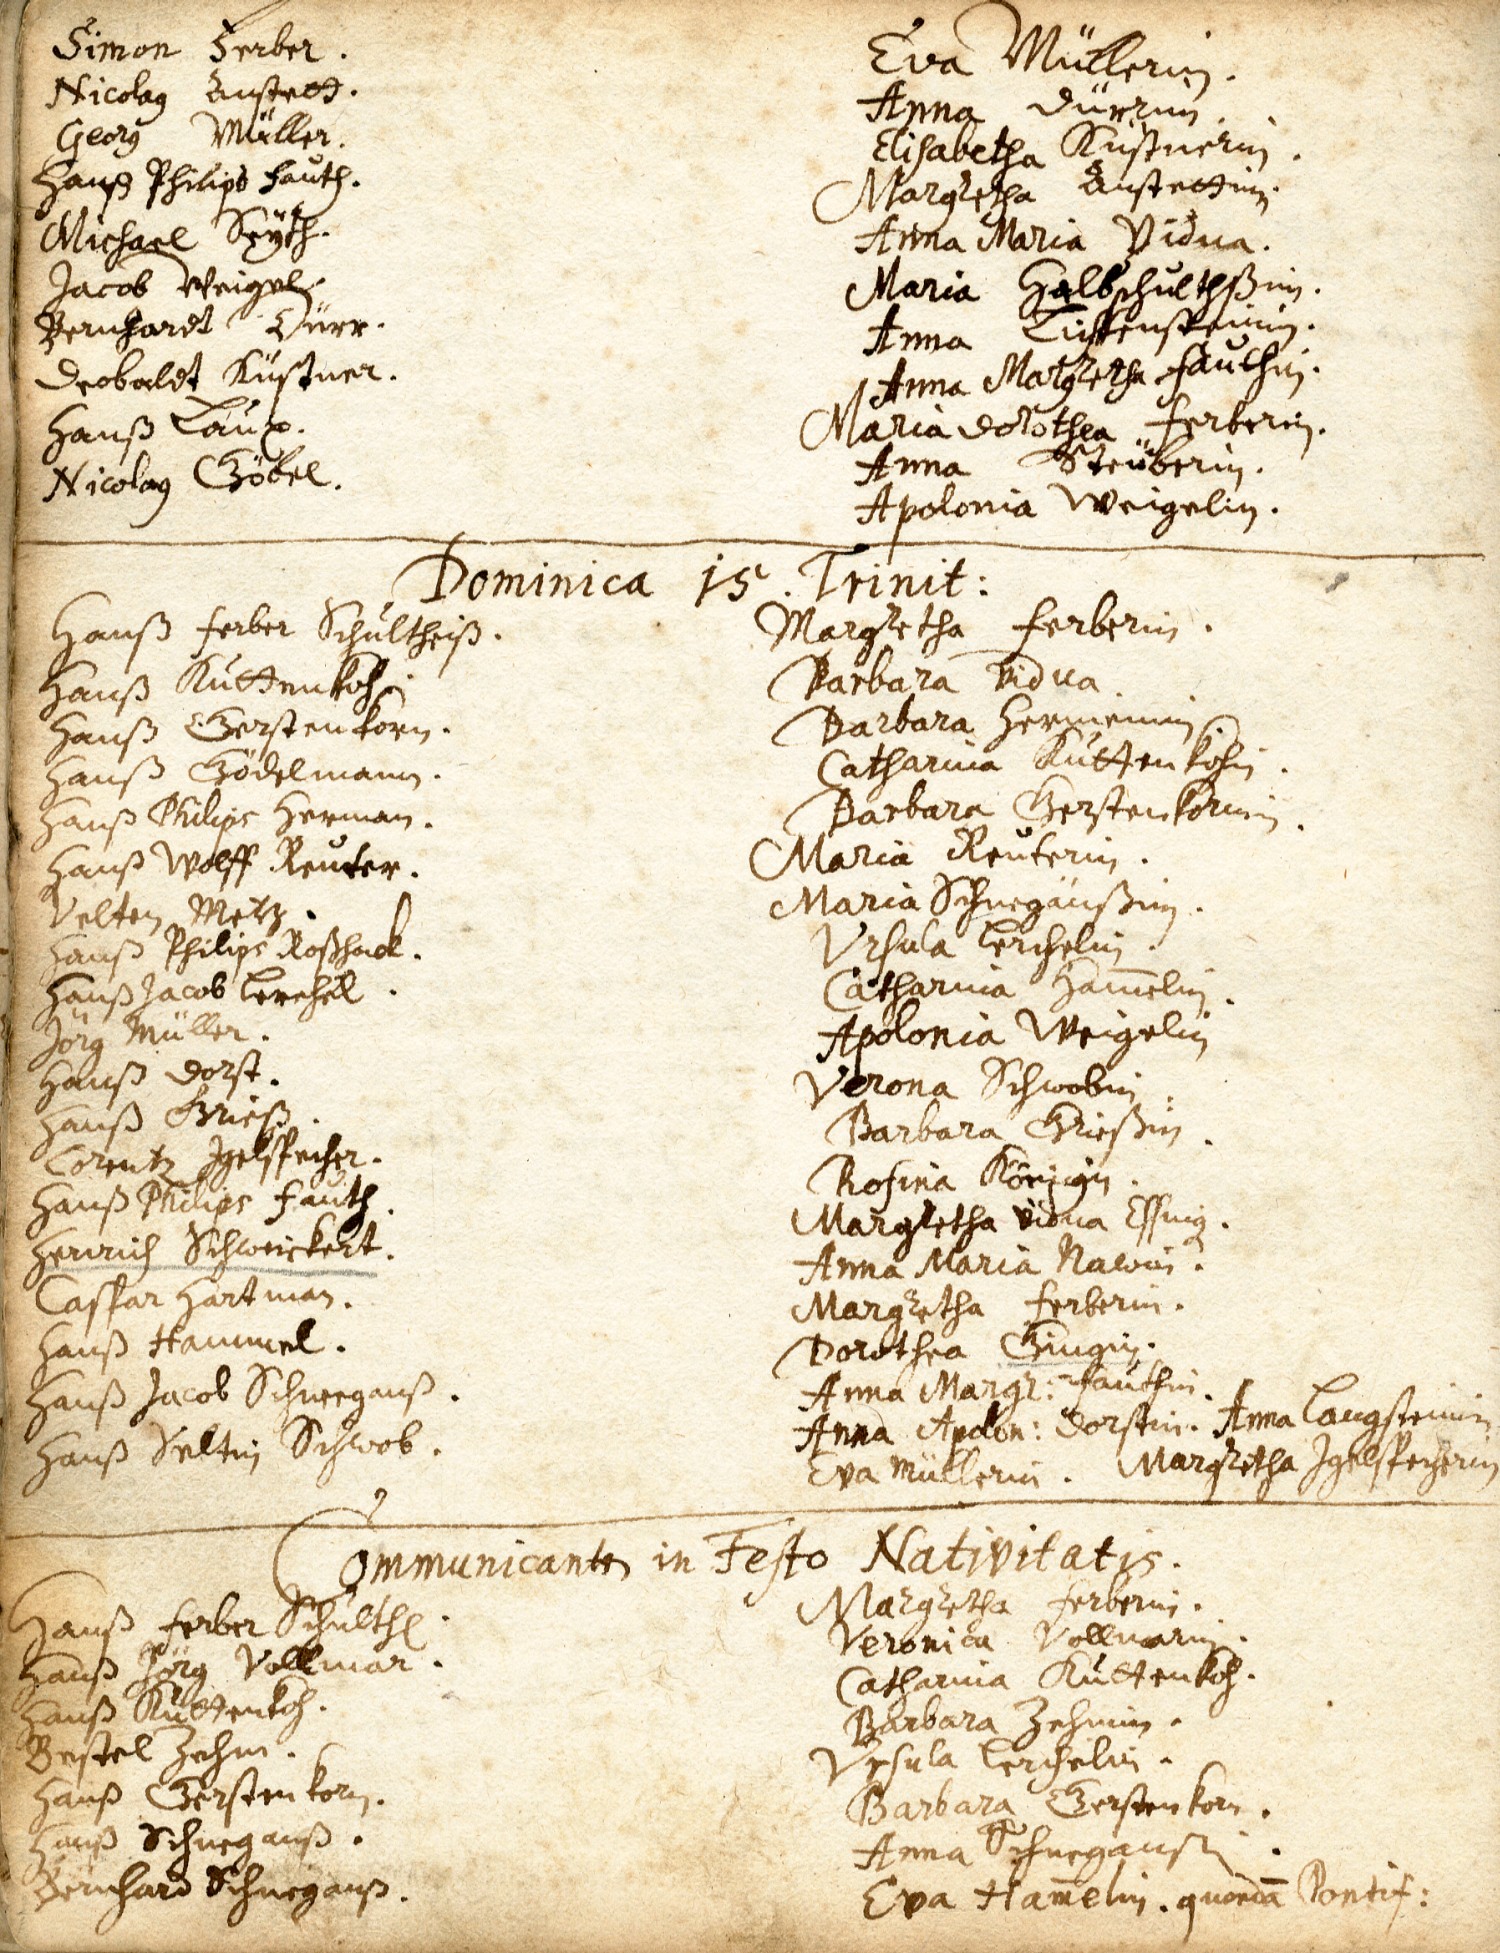 Simon Ferber.
Nicolaq Anstett.
Georg Müller.
Hanß Philips Fauth.
Michael Seyth.
Jacob Weigel.
Bernhardt Dürr.
Deobaldt Küstner.
Hanß Laux.
Nicolaq Göbel.
Eva Müllerin.
Anna Dürrin.
Elisabetha Küstnerin.
Margretha Anstettin.
Anna Maria Vidua.
Maria Halbschulthßin.
Anna
Anna Margretha Fauthin.
Maria Dorothea Ferberin.
Anna Steüberin.
Apolonia Weigelin.
Dominica 15. Trinit:
Hanß Ferber Schultheiß.
Hanß Kuttenkoh.
Hanß Gerstenkorn.
Hanß Gödelmann.
Hanß Philips Herman.
Hanß Wolff Reuter.
Velten Metz.
Hanß Philips Roßhack.
Hanß Jacob Lerchel.
Jörg Müller.
Hanß Dorst.
Hanß Grieß.
Lorentz Igelspecher.
Hanß Philips Fauth.
Henrich Schweickert.
Caspar Hartman.
Hanß Hammel.
Hanß Jacob Schneeganß.
Hanß Veltin Schwob.
Margretha Ferberin.
Barbara Vidua.
Barbara Hermennin
Catharina Kuttenkohin.
Barbara Gerstenkornin.
Maria Reuterin.
Maria Schnegäußin.
Vrsula Lerchelin.
Catharina Ham̄elin.
Apolonia Weigelin
Verona Schwobin.
Barbara Grießin.
Rosina Königin.
Margretha Vidua
Anna Maria
Margretha Ferberin.
Dorothea Gingin.
Anna Margr: Fauthin.
Anna Apolon: Dorstin. Anna Langsteinin
Eva Müllerin. Margretha Igelspecherin
Communicantes in Festo Nativitatis.
Hanß Ferber Schulthß.
Hanß Jörg Vollmar.
Hanß Kuttenkoh.
Bestel Zehm.
Hanß Gerstenkorn.
Hanß Schneganß.
Bernhard Schneganß.
Margretha Ferberin.
Veronica Vollmarin.
Catharina Kuttenkoh.
Barbara Zehmin.
Vrsula Lerchelin.
Barbara Gerstenkorn.
Anna Schnegansin.
Eva Ham̄elin. quondā Pontif: